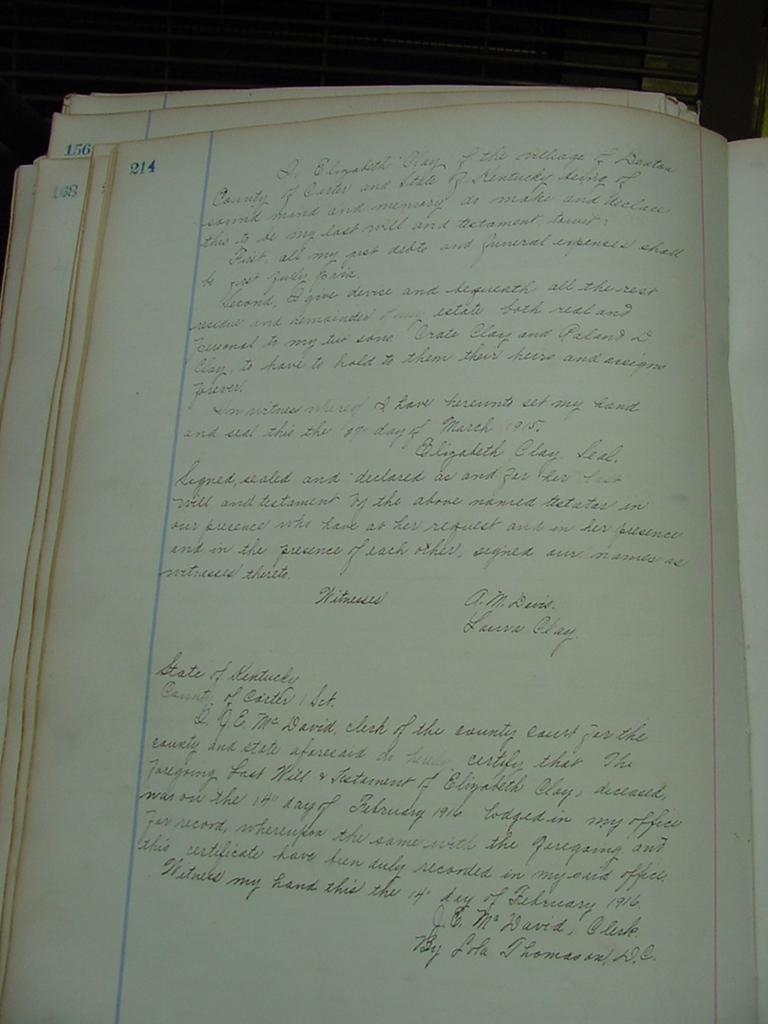 156
168
214
I, Elizabeth Clay of the village of Denton
County of Carter and State of Kentucky being of
sound mind and memory do make and declare
this to be my last will and testament, towit:
First, all my just debts and funeral expenses shall
be first fully paid.
Second, I give devise and bequeath all the rest
residue and remainder of my estate both real and
personal to my two sons Crate Clay and Roland D.
Clay, to have to hold to them their heirs and assigns
forever.
In witness whereof I have hereunto set my hand
and seal this the day of March 1915.
Elizabeth Clay Seal.
Signed, sealed and declared as and for her last
will and testament by the above named testator in
our presence who have at her request and in her presence
and in the presence of each other, signed our names as
witnesses thereto.
Witnesses A. M. Davis.
Laura Clay.
State of Kentucky
County of Carter Sct.
I, J. E. McDavid, clerk of the county court for the
county and state aforesaid do hereby certify that The
foregoing Last Will & Testament of Elizabeth Clay, deceased,
was on the 14" day of February 1916 lodged in my office
for record, whereupon the same with the foregoing and
this certificate have been duly recorded in my said office.
Witness my hand this the 14" day of February 1916.
J. E. McDavid, Clerk.
By Lola Thomason, D.C.